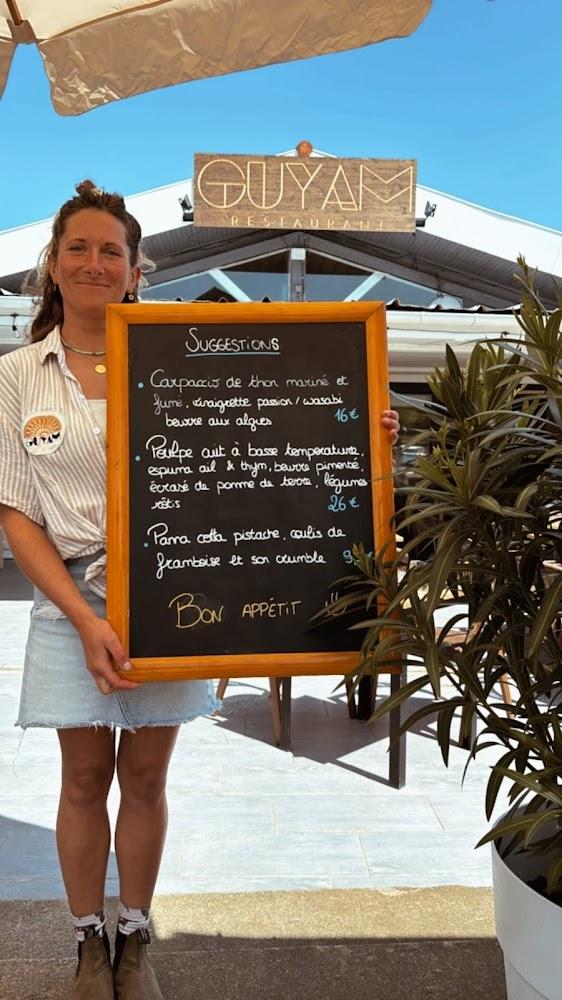 GUYAM
RESTAURANT
GUYAM
SUGGESTIONS
Carpaccio de thon mariné et
fumé, vinaigrette passion / wasabi
beurre aux algues 16€
Poulpe cuit à basse temperature,
espuma ail & thym, beurre pimenté,
écrasé de pomme de terre, légumes
rôtis 26€
Panna cotta pistache, coulis de
framboise et son crumble 9,
BON APPÉTIT